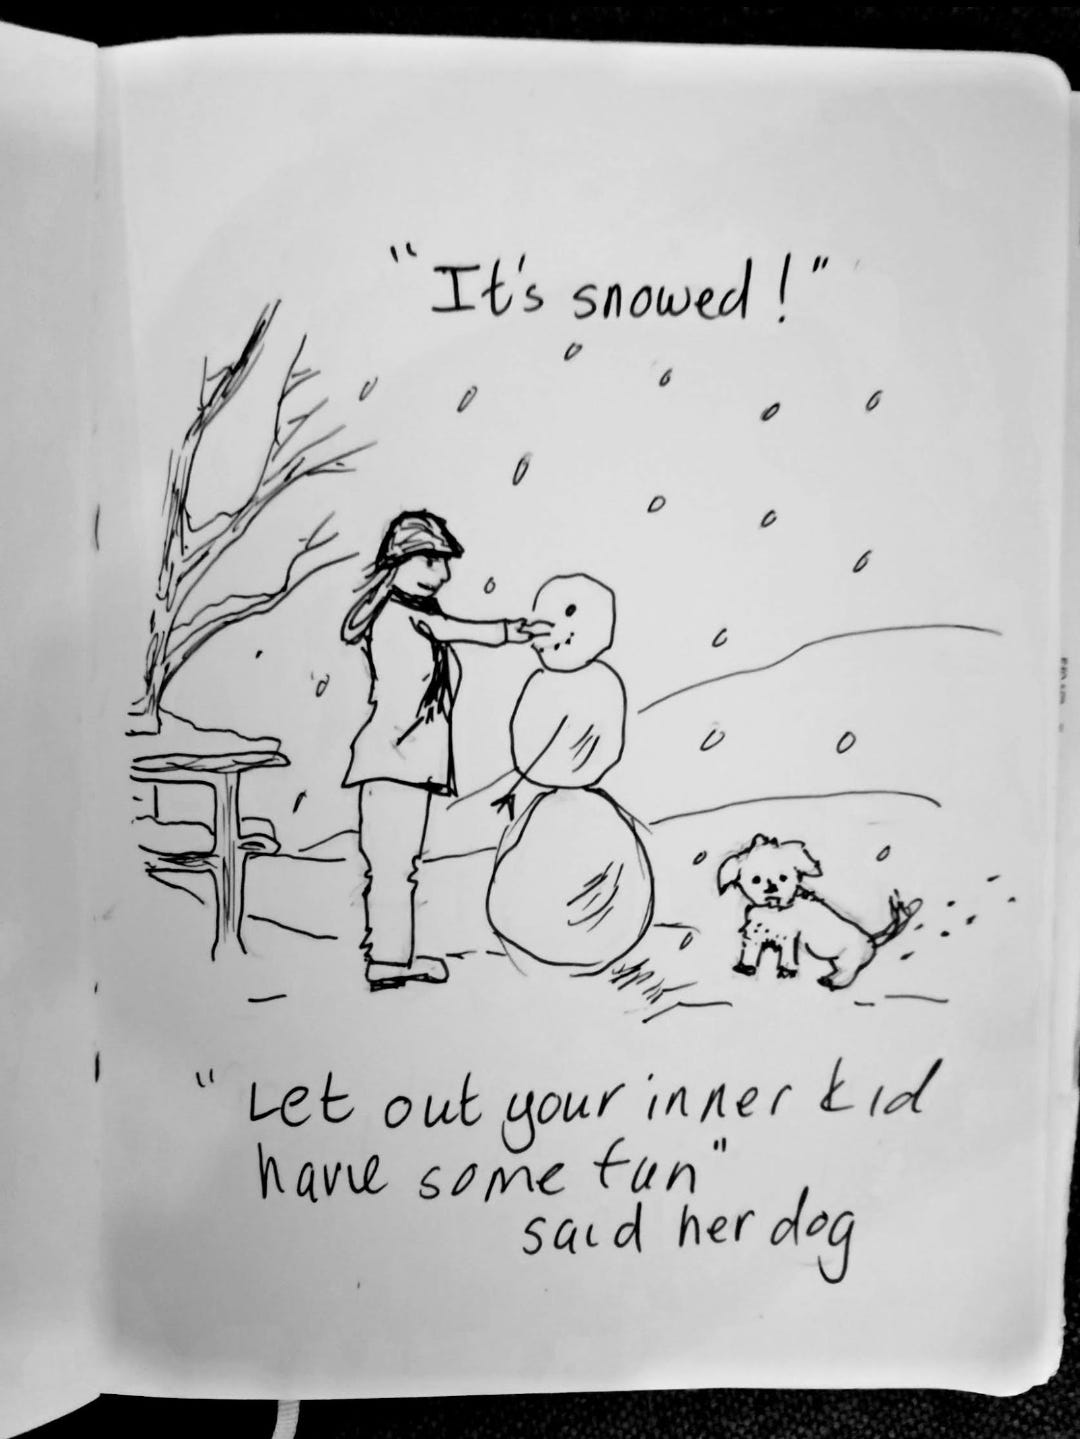 "It's snowed!"
"Let out your inner kid
have some fun"
said her dog